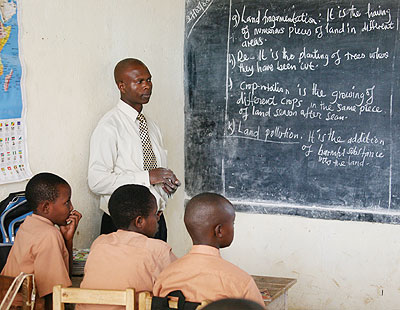 g) Land fragmentation: It is the having
of numerous pieces of land in different
areas.
Re- It is the planting of trees where
they have been cut.
Crop-rotation is the growing of
different crops in the same piece
of land season after season.
Land pollution. It is the addition
of harmful substance
into the land.